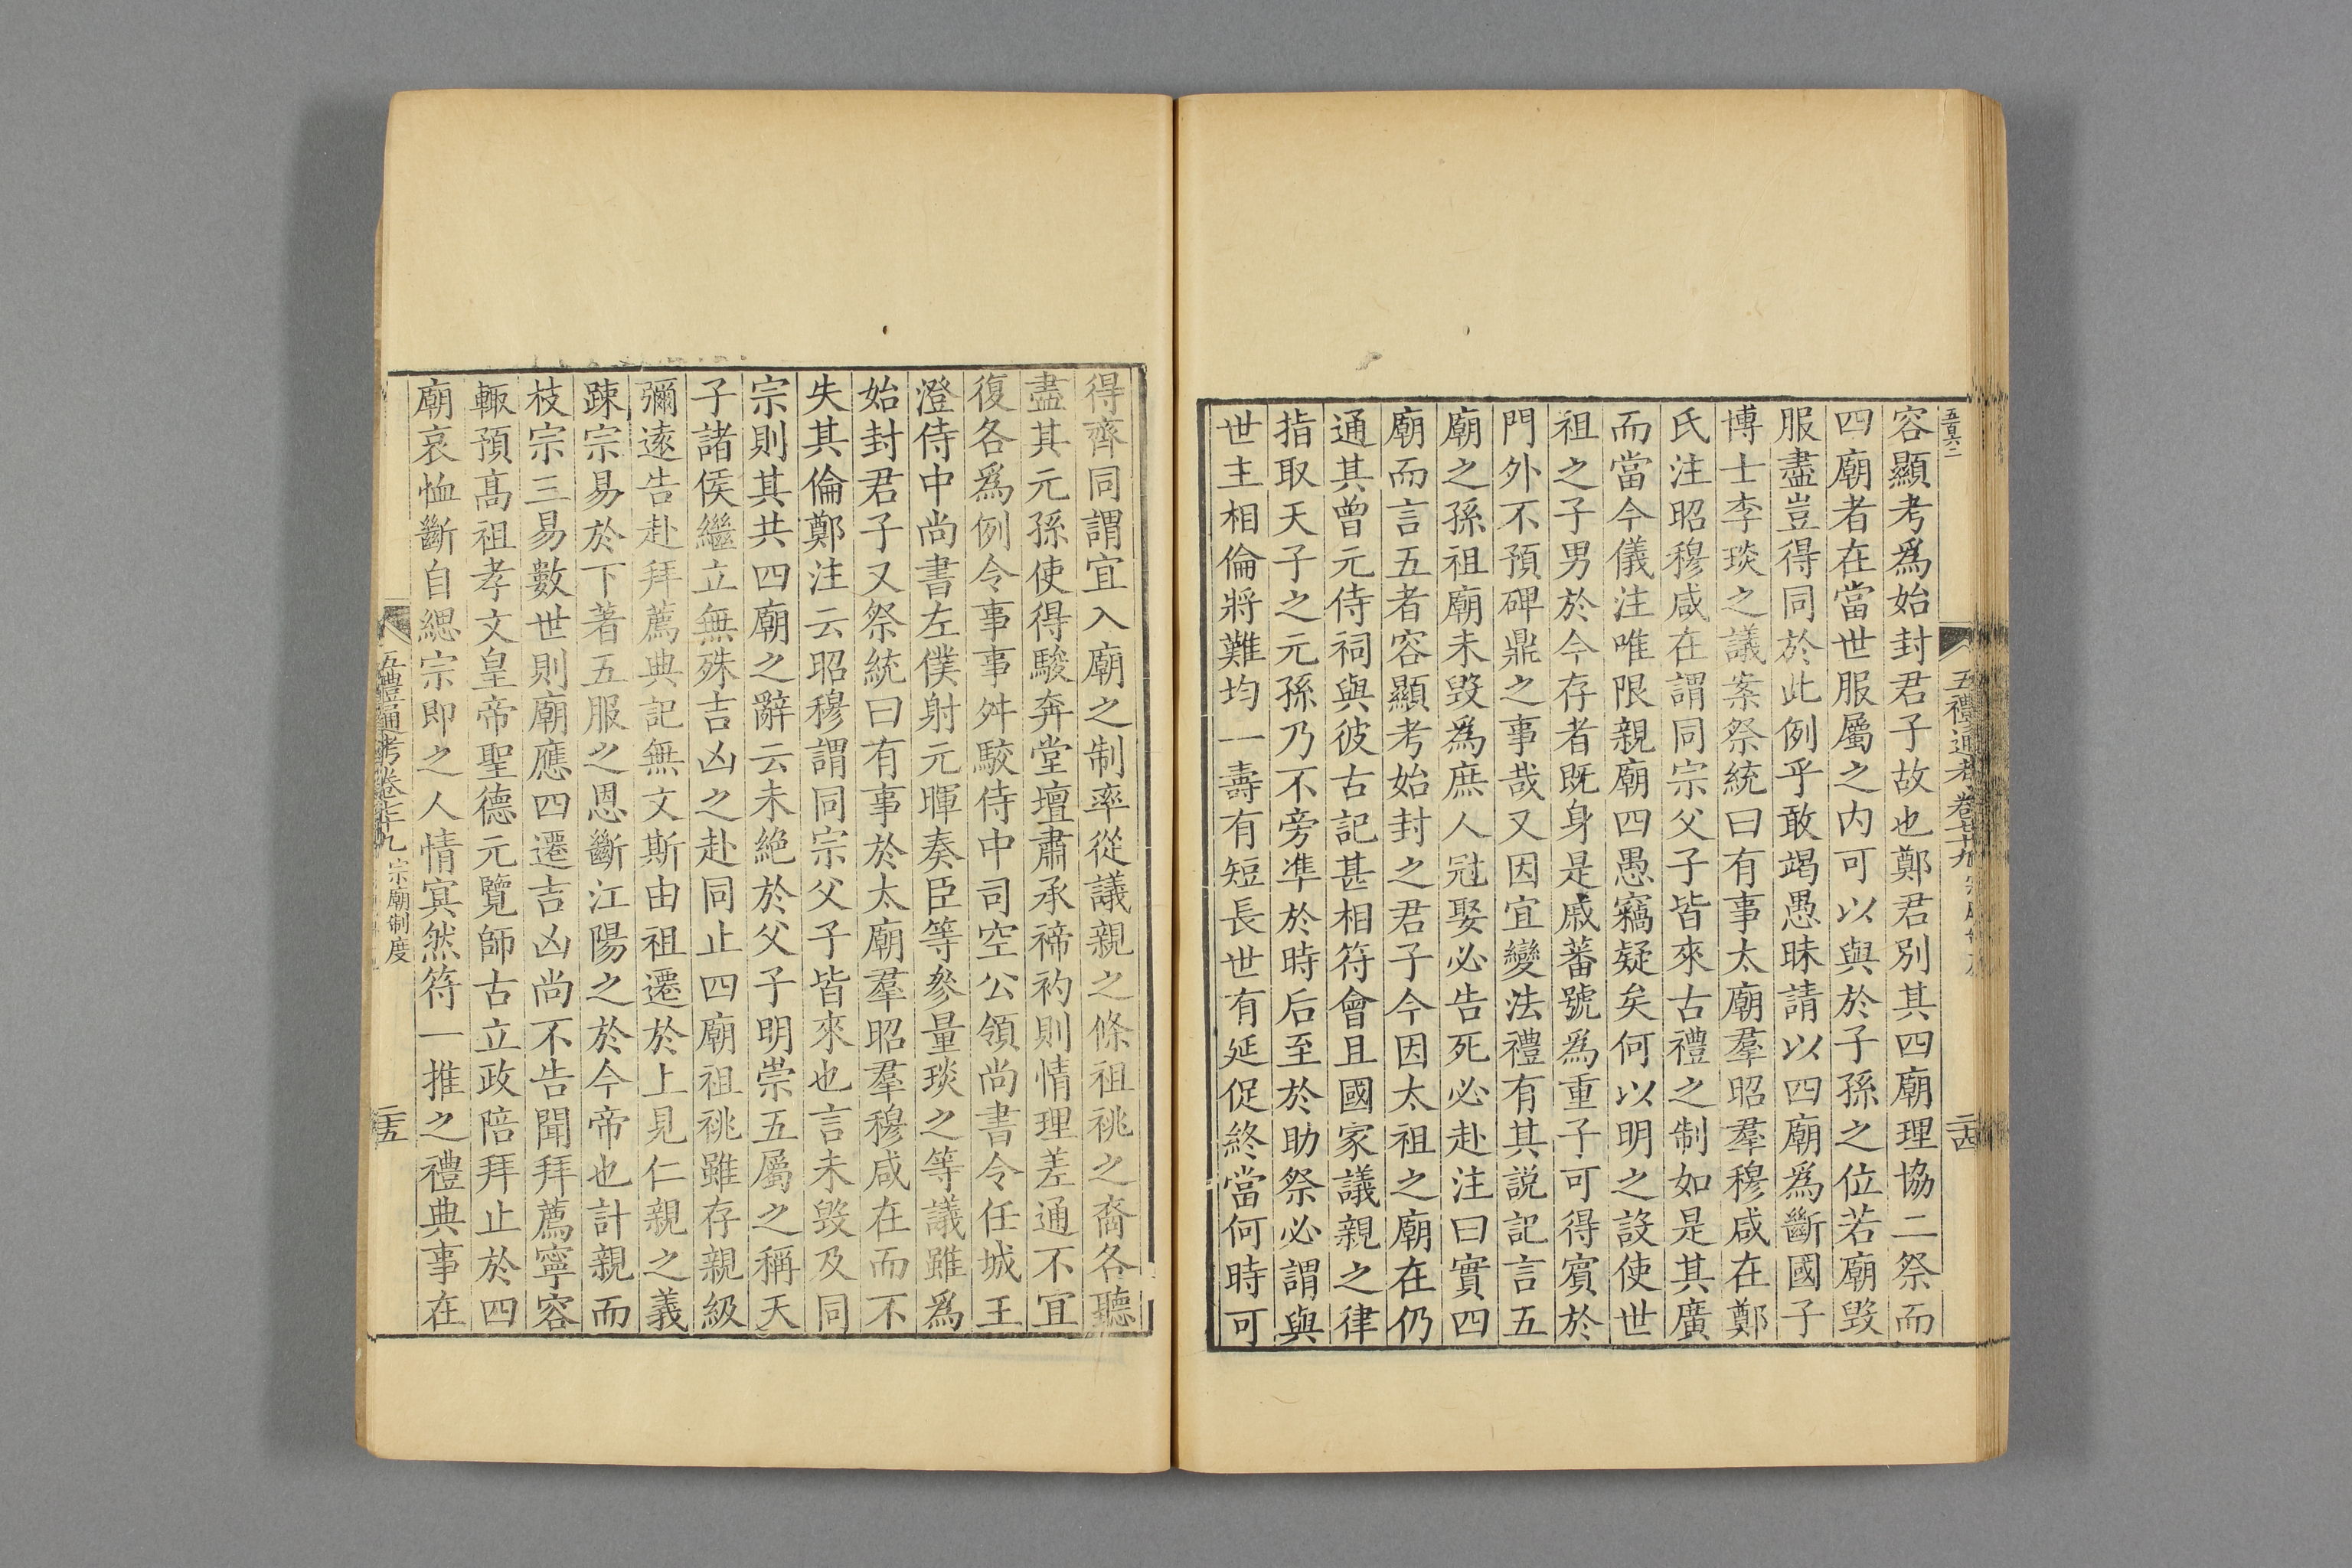 容顯考爲始封君子故也鄭君別其四廟理協二祭而
四廟者在當世服屬之内可以與於子孫之位若廟毀
服盡豈得同於此例乎敢竭愚昧請以四廟爲斷國子
博士李琰之議案祭統曰有事太廟羣昭羣穆咸在鄭
氏注昭穆咸在謂同宗父子皆來古禮之制如是其廣
而當今儀注唯限親廟四愚竊疑矣何以明之設使世
祖之子男於今存者既身是戚蕃號爲重子可得賓於
門外不預碑鼎之事哉又因宜變法禮有其説記言五
廟之孫祖廟未毀爲庶人冠娶必告死必赴注曰實四
廟而言五者容顯考始封之君子今因太祖之廟在仍
通其曾元侍祠與彼古記甚相符會且國家議親之律
指取天子之元孫乃不旁準於時后至於助祭必謂與
世主相倫將難均一壽有短長世有延促終當何時可
五禮通考卷七十九
二十四
得齊同謂宜入廟之制率從議親之條祖祧之裔各聽
盡其元孫使得駿奔堂壇肅承禘礿則情理差通不宜
復各爲例令事事舛駮侍中司空公領尚書令任城王
澄侍中尚書左僕射元暉奏臣等參量琰之等議雖爲
始封君子又祭統曰有事於太廟羣昭羣穆咸在而不
失其倫鄭注云昭穆謂同宗父子皆來也言未毀及同
宗則其共四廟之辭云未絶於父子明崇五屬之稱天
子諸侯繼立無殊吉凶之赴同止四廟祖祧雖存親級
彌遠告赴拜薦典記無文斯由祖遷於上見仁親之義
踈宗易於下著五服之恩斷江陽之於今帝也計親而
枝宗三易數世則廟應四遷吉凶尚不告聞拜薦寧容
輒預髙祖孝文皇帝聖德元覽師古立政陪拜止於四
廟哀恤斷自緦宗即之人情冥然符一推之禮典事在
五禮通考卷七十九 宗廟制度
二十五